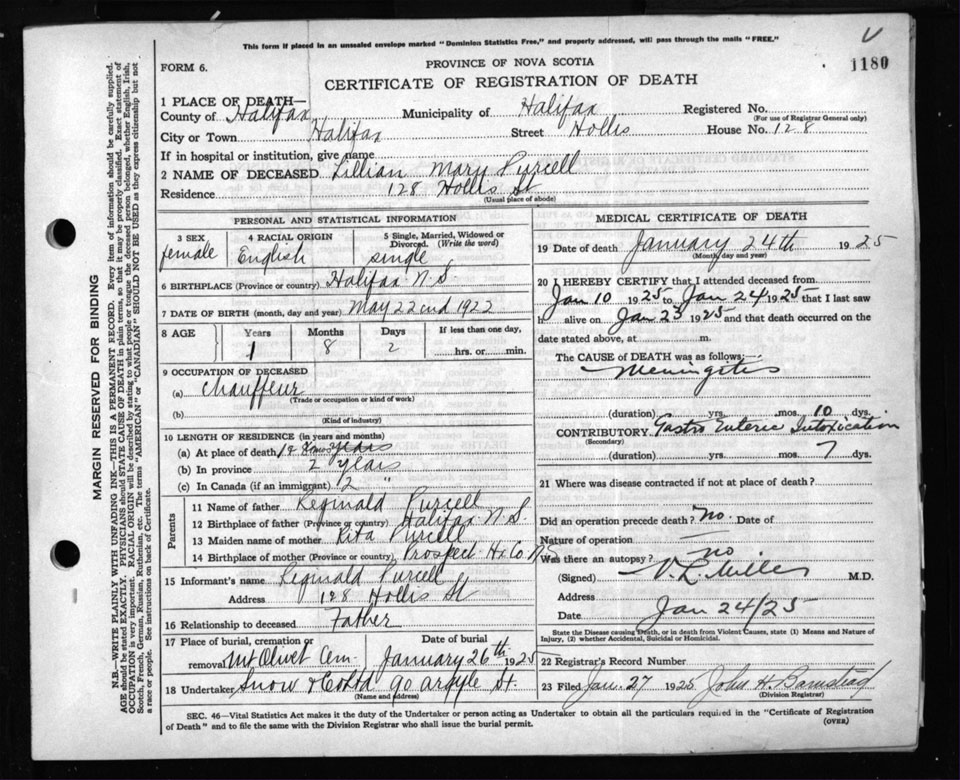 This form if placed in an unsealed envelope marked "Dominion Statistics Free," and properly addressed, will pass through the mails "FREE."
V
1180
FORM 6.
PROVINCE OF NOVA SCOTIA
CERTIFICATE OF REGISTRATION OF DEATH
1 PLACE OF DEATH—
County of Halifax Municipality of Halifax Registered No.
(For use of Registrar General only)
City or Town Halifax Street Hollis House No. 128
If in hospital or institution, give name
2 NAME OF DECEASED Lillian Mary Purcell
Residence 128 Hollis St
(Usual place of abode)
PERSONAL AND STATISTICAL INFORMATION
3 SEX female
4 RACIAL ORIGIN English
5 Single, Married, Widowed or Divorced. (Write the word) single
6 BIRTHPLACE (Province or country) Halifax N.S.
7 DATE OF BIRTH (month, day and year) May 22cnd 1922
8 AGE Years Months Days If less than one day,
1 8 2 hrs. or min.
9 OCCUPATION OF DECEASED
(a) Chauffeur
(Trade or occupation or kind of work)
(b)
(Kind of industry)
10 LENGTH OF RESIDENCE (in years and months)
(a) At place of death years
(b) In province 2 years
(c) In Canada (if an immigrant) 2 "
Parents
11 Name of father Reginald Purcell
12 Birthplace of father (Province or country) Halifax N.S.
13 Maiden name of mother Rita Purcell
14 Birthplace of mother (Province or country) Prospect Hx Co NS
15 Informant's name Reginald Purcell
Address 128 Hollis St
16 Relationship to deceased Father
17 Place of burial, cremation or Date of burial
removal Mt Olivet Cem January 26th 1925
18 Undertaker Snow & Co Ltd 90 Argyle St.
(Name and address)
MEDICAL CERTIFICATE OF DEATH
19 Date of death January 24th 1925
(Month, day and year)
20 I HEREBY CERTIFY that I attended deceased from
Jan 10 1925 to Jan 24 1925 that I last saw
h alive on Jan 23 1925 and that death occurred on the
date stated above, at m.
The CAUSE OF DEATH was as follows:
Meningitis
(duration) yrs. mos. 10 dys.
CONTRIBUTORY Gastro Enteric Intoxication
(Secondary)
(duration) yrs. mos. 7 dys.
21 Where was disease contracted if not at place of death?
Did an operation precede death? no Date of
Nature of operation
Was there an autopsy? no
(Signed) V. L. Miller M.D.
Address
Date Jan 24/25
State the Disease causing Death, or in death from Violent Causes, state (1) Means and Nature of
Injury, (2) whether Accidental, Suicidal or Homicidal.
22 Registrar's Record Number
23 Filed Jan. 27 1925 John H. Barnstead
(Division Registrar)
SEC. 46—Vital Statistics Act makes it the duty of the Undertaker or person acting as Undertaker to obtain all the particulars required in the "Certificate of Registration
of Death" and to file the same with the Division Registrar who shall issue the burial permit.
(OVER)
MARGIN RESERVED FOR BINDING
N.B.—WRITE PLAINLY WITH UNFADING INK—THIS IS A PERMANENT RECORD. Every item of information should be carefully supplied.
AGE should be stated EXACTLY. PHYSICIANS should STATE CAUSE OF DEATH in plain terms, so that it may be properly classified. Exact statement of
OCCUPATION is very important. RACIAL ORIGIN will be described by stating to what people or tongue the deceased person belonged, whether English, Irish,
Scotch, French, German, Russian, Ruthenian, etc. The terms "AMERICAN" or "CANADIAN" SHOULD NOT BE USED as they express citizenship but not
a race or people. See instructions on back of Certificate.